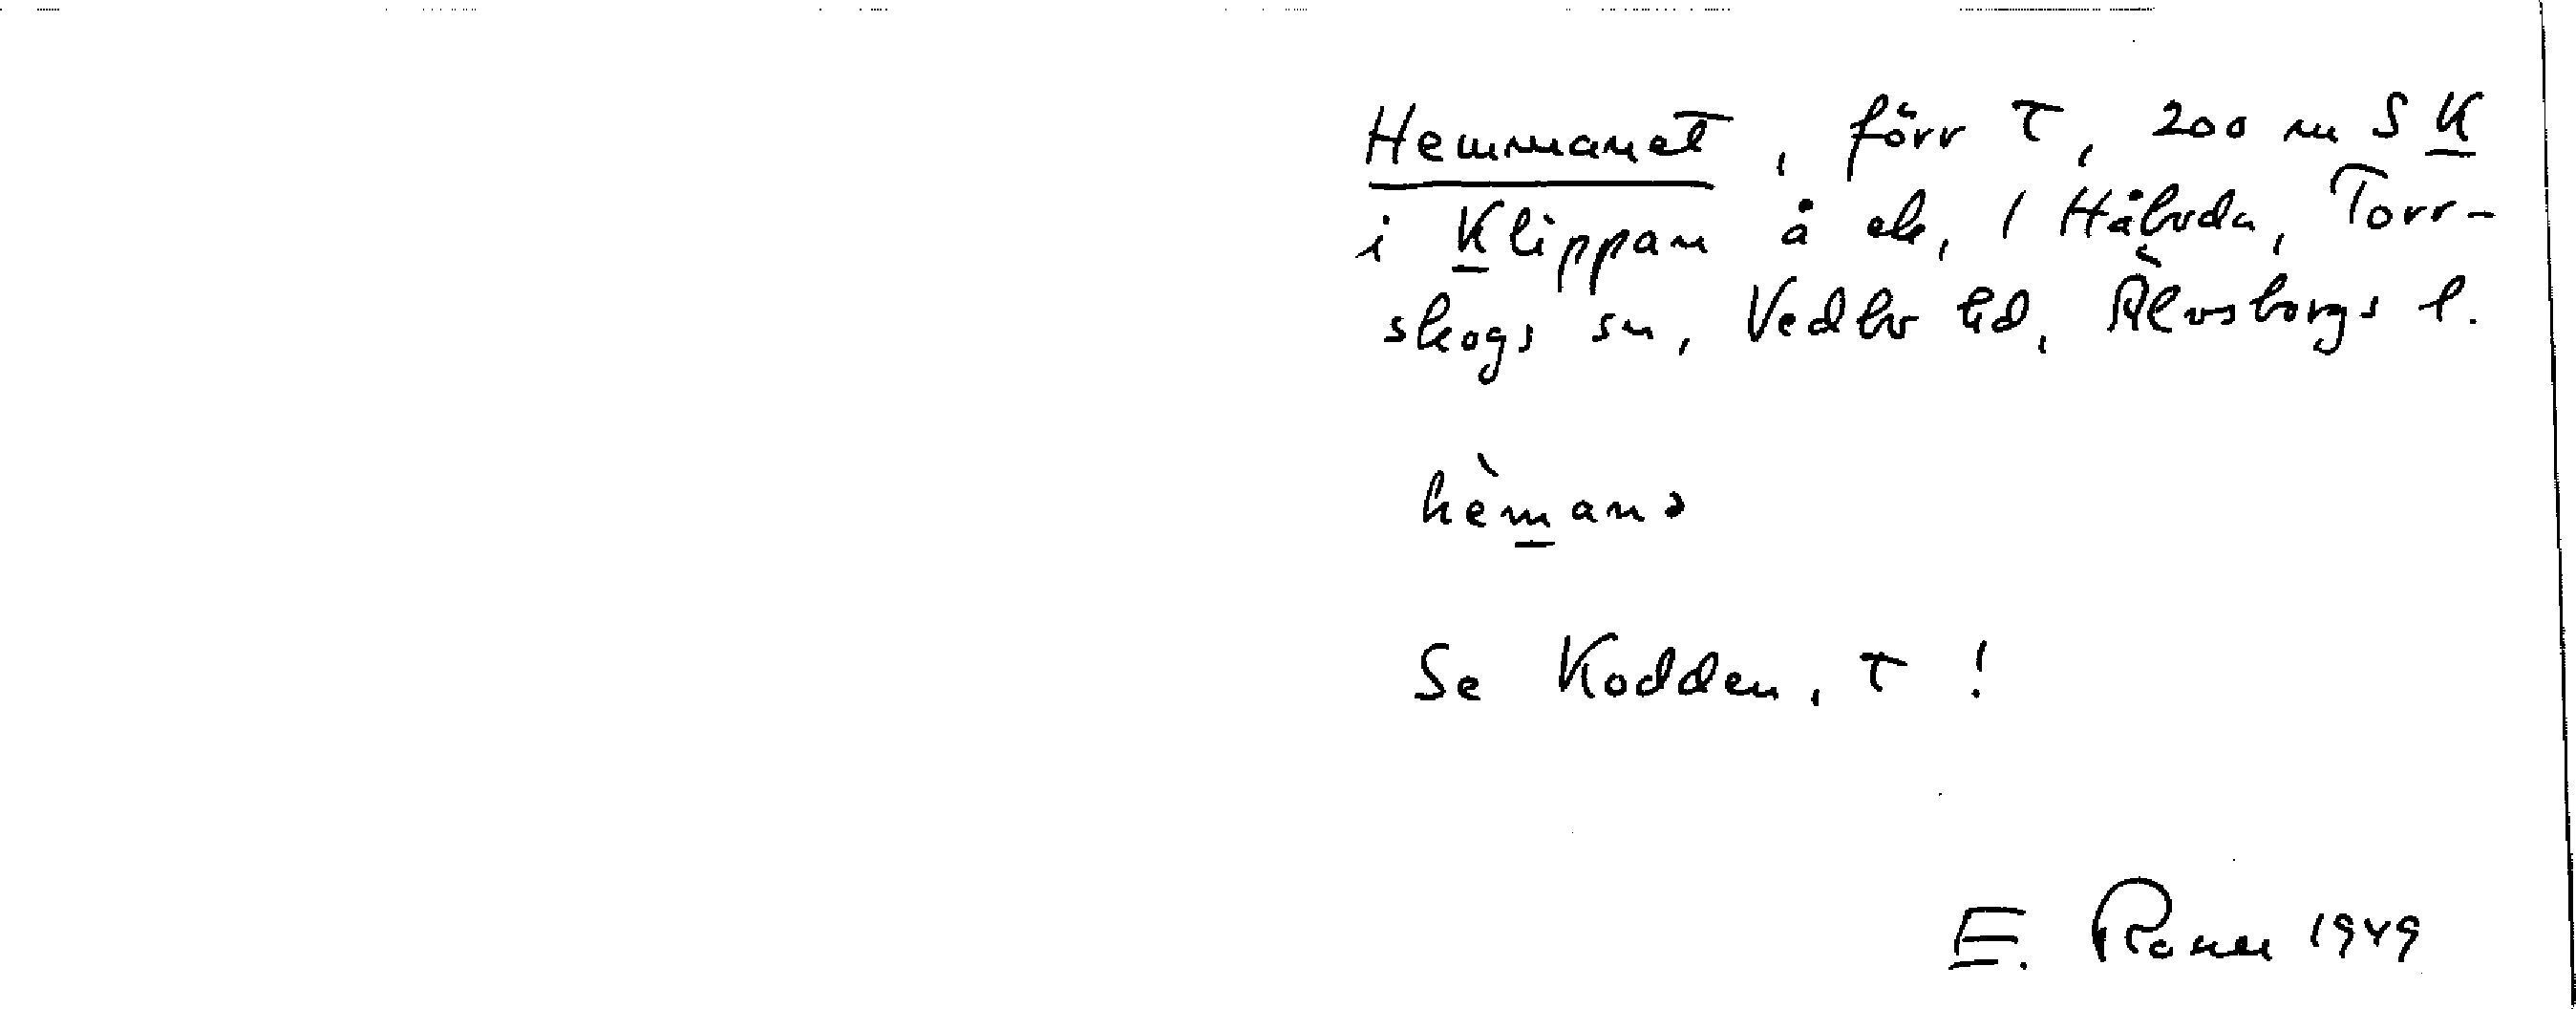 Hemmanet, förr T, 200 m S K
i Klippan å ek, 1 Håbyda, Torr-
skogs sn, Vedbo hd, Älvsborgs l.
hèmanə
Se Kodden, T !
E. 1949